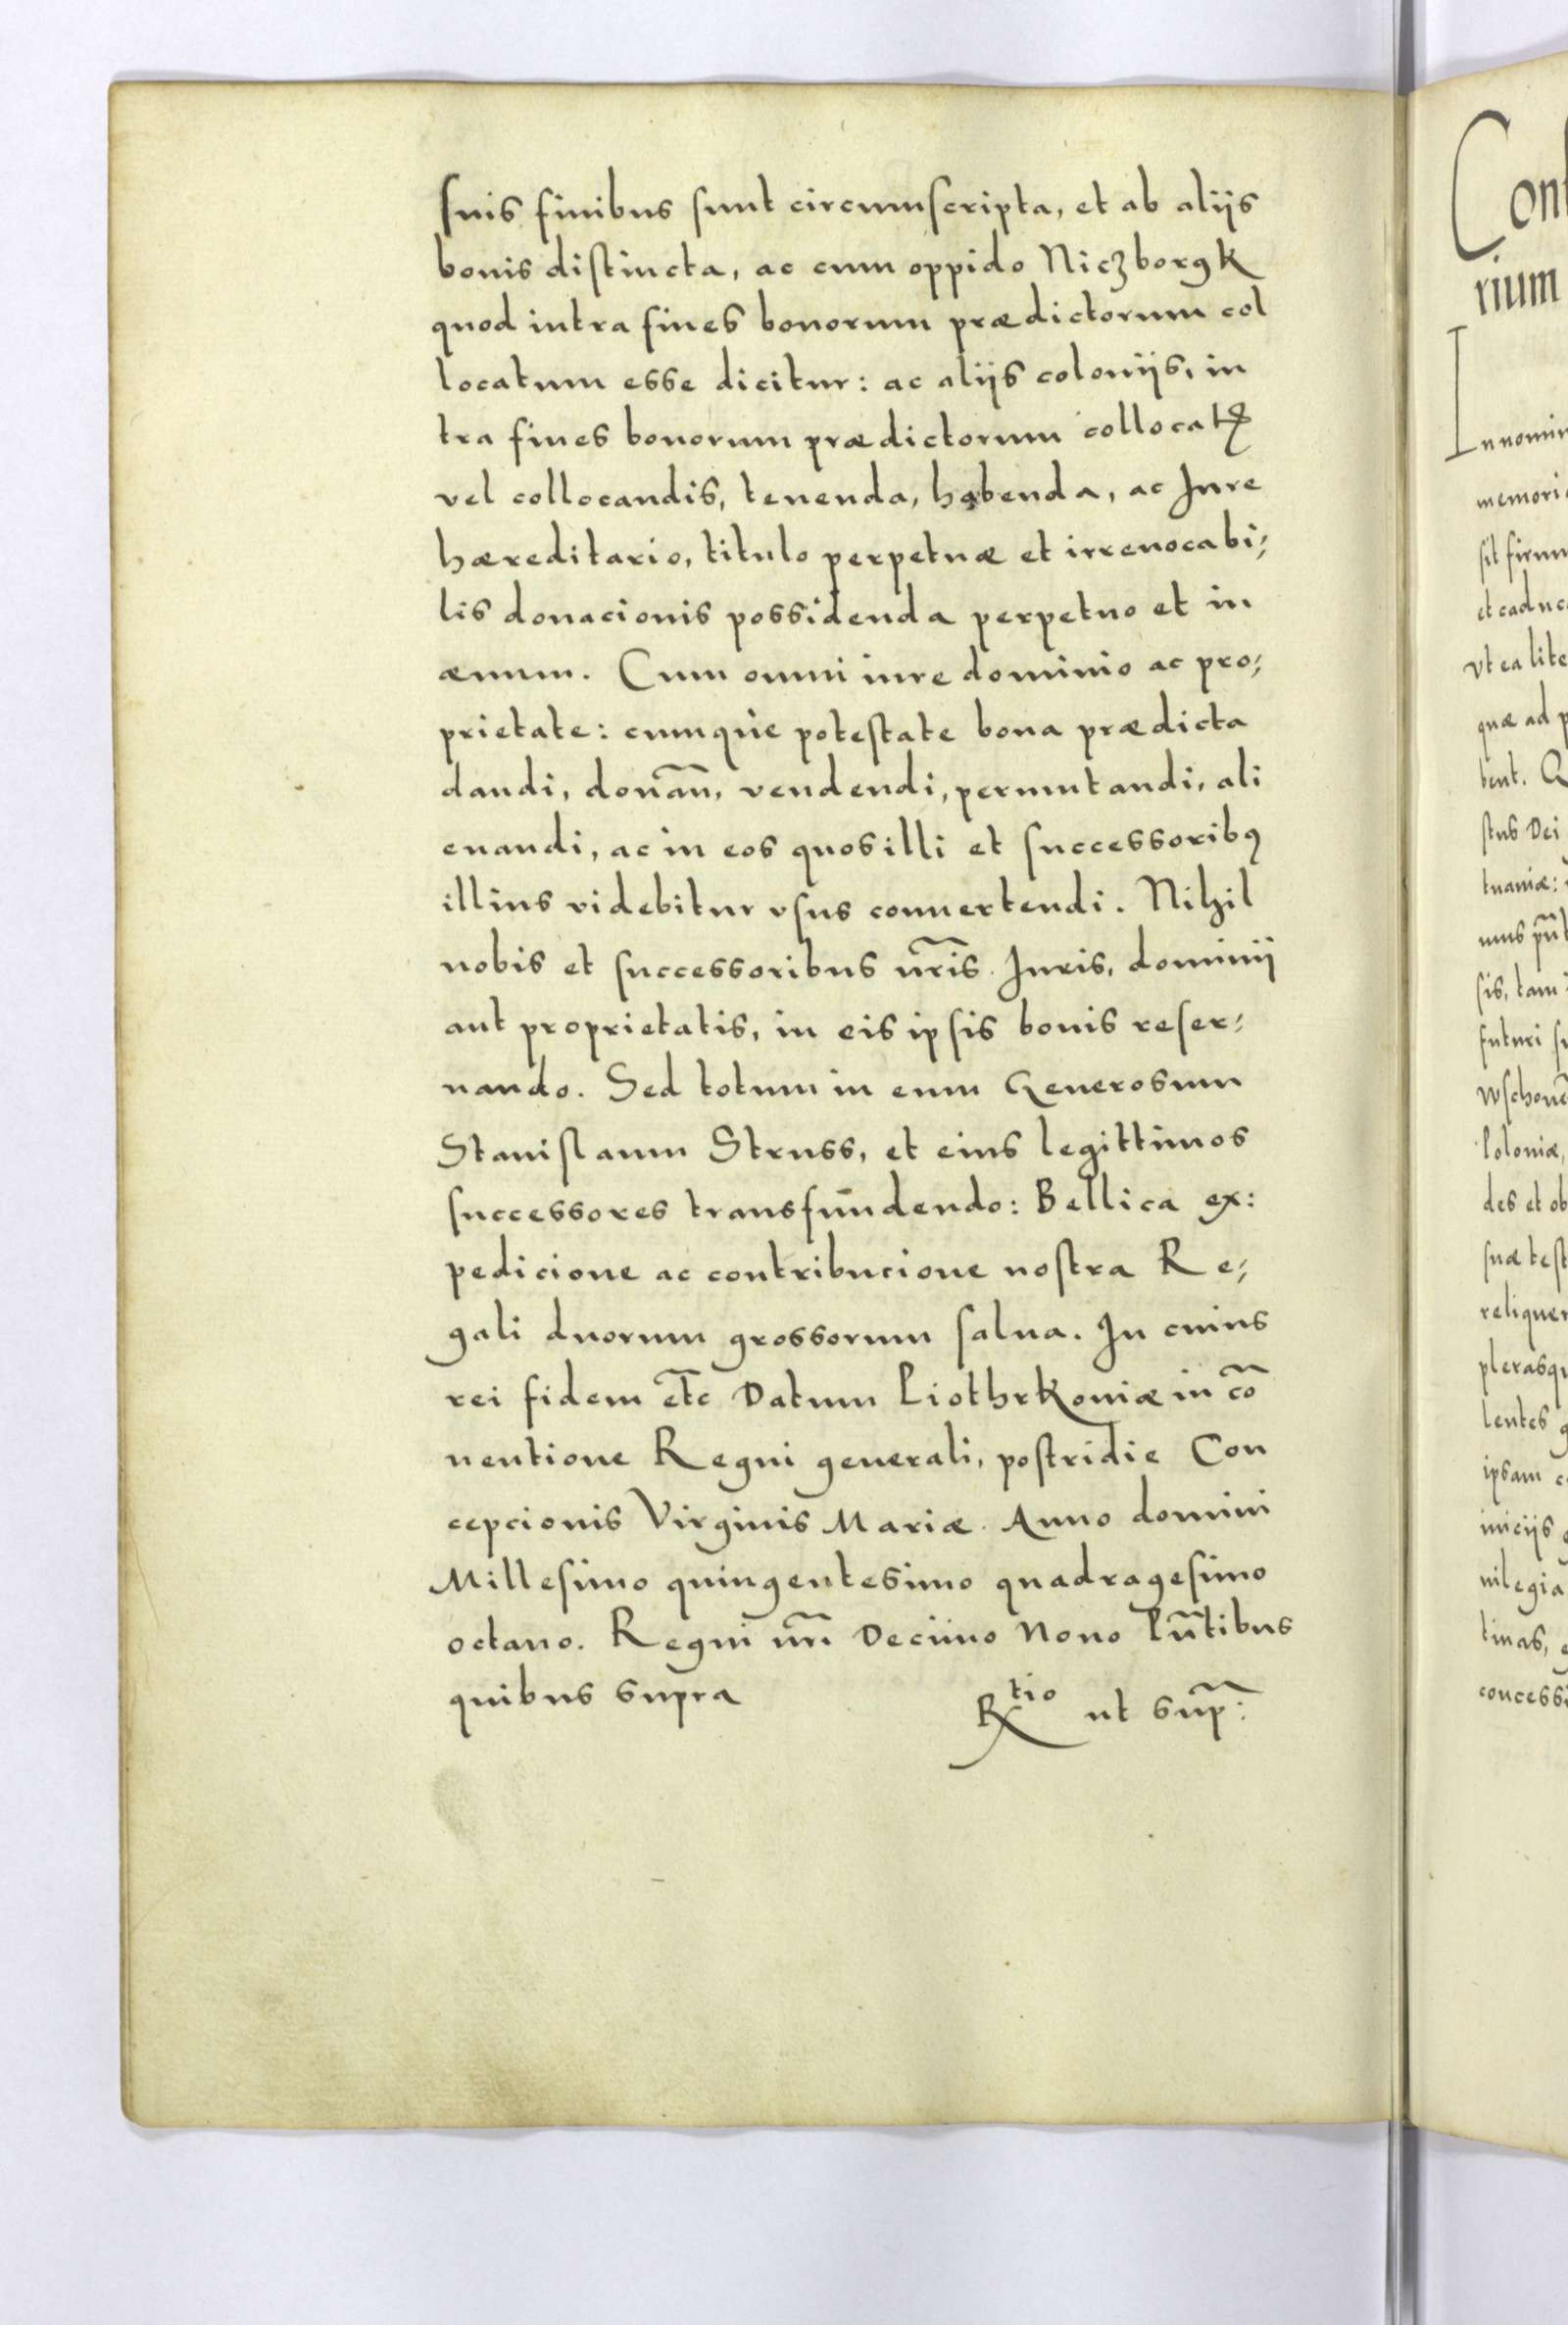 suis finibus sunt circumscripta, et ab aliis
bonis distincta, ac cum oppido Niczborgk
quod intra fines bonorum prædictorum col
locatum esse dicitur: ac aliis coloniis, in
tra fines bonorum prædictorum
vel collocandis, tenenda, habenda, ac Iure
hæreditario, titulo perpetuæ et irreuocabi⸗
lis donacionis possidenda perpetuo et in
æuum. Cum omni iure dominio ac pro⸗
prietate: cumque potestate bona prædicta
dandi, donañ, vendendi, permutandi, ali
enandi, ac in eos quos illi et successoribꝰ
illius videbitur vsus conuertendi. Nihil
nobis et successoribus nr̃is Iuris, dominii
aut proprietatis, in eis ipsis bonis reser⸗
uando. Sed totum in eum Generosum
Stanislaum Struss, et eius legittimos
successores transfundendo: Bellica ex:
pedicione ac contribucione nostra Re⸗
gali duorum grossorum salua. In cuius
rei fidem etc̃ Datum in cõ
uentione Regni generali, postridie Con
cepcionis Virginis Mariæ. Anno domini
Millesimo quingentesimo quadragesimo
octauo. Regni nr̃i Decimo Nono Pñtibus
quibus supra
Rtio ut sup̃:
Con
rium
In nomin
memori
sit firm
et caduc
vt ea lite
quæ ad p
bent. Q
stus Dei
tuaniæ:
mus
sis, tam
futuri su
Wschou
Poloniæ,
des et ob
suæ test
reliquer
plerasqu
lentes g
ipsam c
iniciis
uilegia
tinas,
concessi